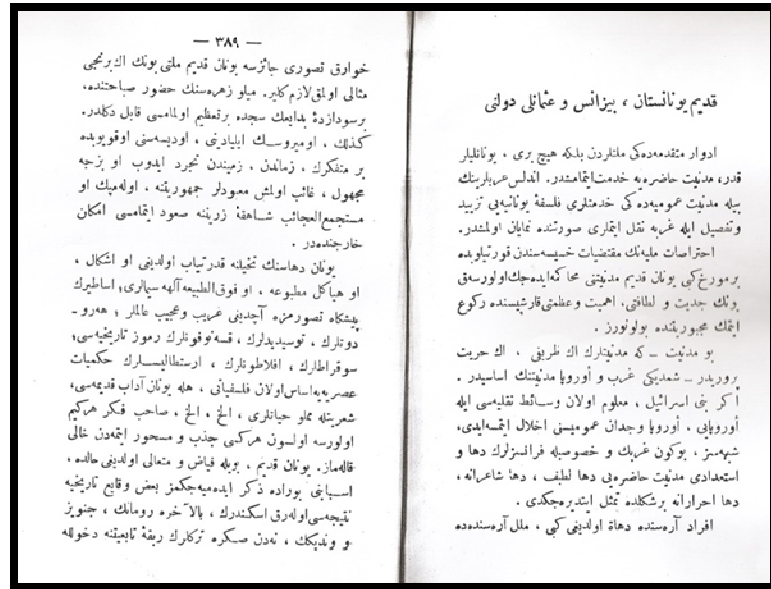 قديم يونانستان ، بيزانس و عثمانلى دولتى
ادوار متقدمه‌ده‌كى ملتلردن بلكه هيچ برى ، يونانليلر
قدر، مدنيت حاضره‌يه خدمت ايتمامشدر. اندلس عربلرينك
بيله مدنيت عموميه‌ده كى خدمتلرى فلسفهٔ يونانيه‌يى تزييد
وتفصيل ايله غربه نقل ايتملرى صورتنده نمايان اولمشدر.
احتراصات مليه‌نك مقتضيات خسيسه‌سندن قورتيلوبده
بر مورخ كبى يونان قديم مدنيتنى محاكمه ايده‌جك اولورسه‌ق
بونك جديت و لطافتى، اهميت و عظمتى قارشيسنده ركوع
ايتمك مجبوريتنده بولونورز .
بو مدنيت ــ كه مدنيتلرك اك ظريفى ، اك حريت
پروريدر ــ شمديكى غرب و أوروپا مدنيتنك اساسيدر .
أكر بنى اسرائيل ، معلوم اولان وسائط نقليه‌سى ايله
أوروپايى ، أوروپا وجدان عموميسنى اخلال ايتمسه‌ايدى،
شبهه‌سز ، بوكون غربك و خصوصيله فرانسزلرك دها و
استعدادى مدنيت حاضره‌يى دها لطيف ، دها شاعرانه ،
دها احرارانه برشكلده تمثل ايتديره‌جكدى .
افراد آره‌سنده دهاة اولديغى كبى ، ملل آره‌سنده‌ده
— ٣٨٩ —
خوارق تصورى جائزسه يونان قديم ملتى بونك اك برنجى
مثالى اولمق لازم كلير. ميلو زهره‌سنك حضور صباحتنده،
برسودازدهٔ بدايعك سجده بر تعظيم اولمامسى قابل دكلدر.
كذلك ، اوميروسك ايليادنى ، اوديسه‌سنى اوقويوبده
بر متفكرك ، زماندن، زميندن تجرد ايدوب او بزجه
مجهول ، غائب اولمش معبودلر جمهوريتنه ، اوله‌مپك او
مستجمع العجائب شاهقهٔ زرينه صعود ايتمامسى امكان
خارجنده‌در .
يونان دهاسنك تخيلنه قدرتياب اولديغى او اشكال ،
او هياكل مطبوعه ، او فوق الطبيعه آلهه سيمالرى؛ اساطيرك
پيشگاه تصورمزه آچديغى غريب وعجيب عالملر ؛ هه‌رو-
دوتلرك ، توسيديدلرك ، قسه‌نوفونلرك رموز تاريخيه‌سى؛
سوقراطلرك ، افلاطونلرك ، ارستطاليسلرك حكميات
عصريه‌يه اساس اولان فلسفياتى ، هله يونان آداب قديمه‌سى،
شعريتله مملو حياتلرى ، الخ ، الخ ، صاحب فكر هركيم
اولورسه اولسون هركسى جذب و مسحور ايتمه‌دن خالى
قاله‌ماز. يونان قديم ، بويله فياض و متعالى اولديغى حالده،
اسبابنى بوراده ذكر ايده‌ميه‌جكمز بعض وقايع تاريخيه
نتيجه‌سى اوله‌رق اسكندرك ، بالآخره رومانك ، جنويز
و ونديكك ، نه‌دن صكره تركلرك ربقهٔ تابعيتنه دخولله